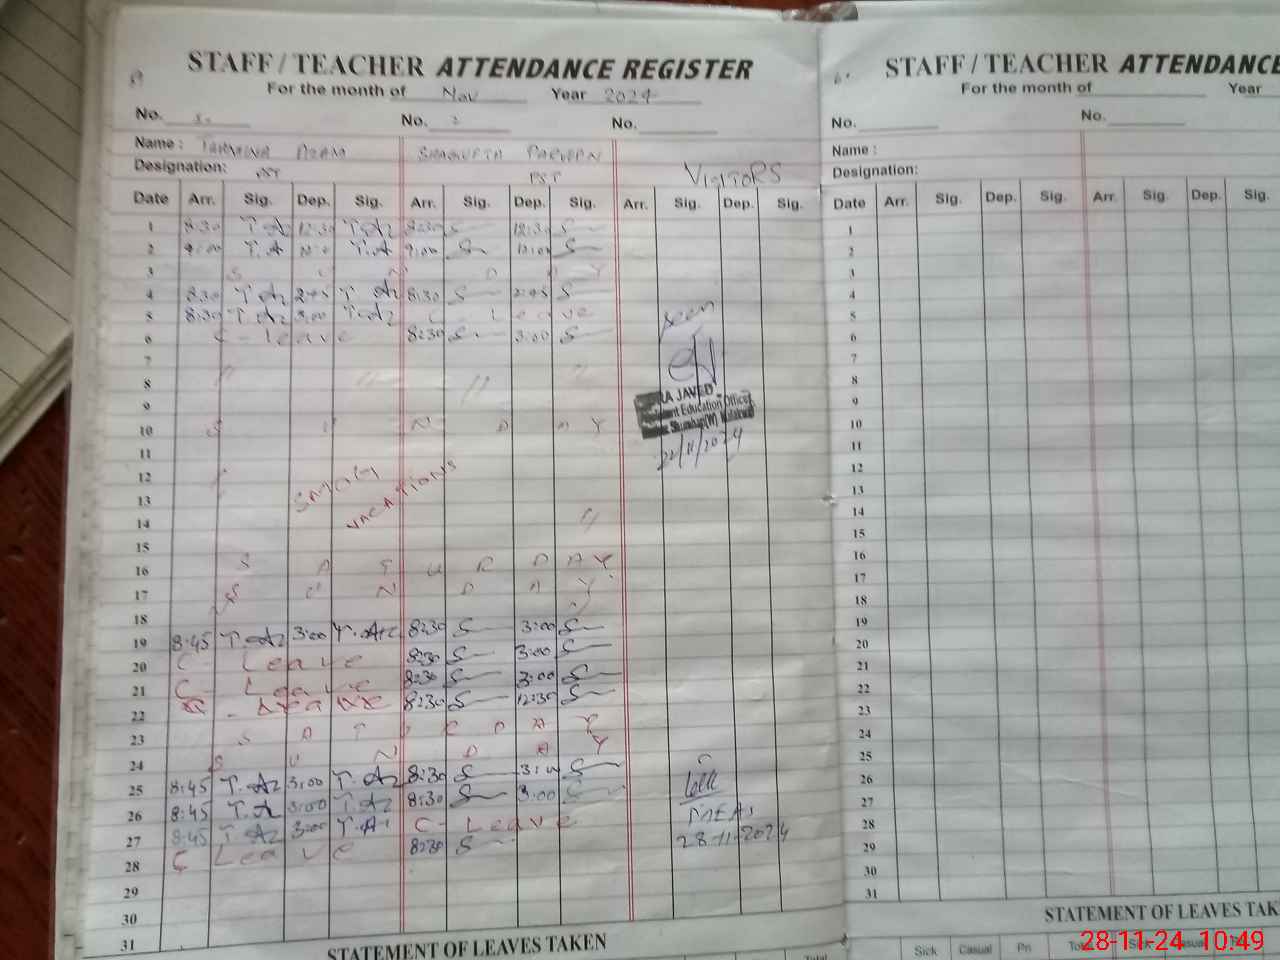 STAFF / TEACHER ATTENDANCE REGISTER
For the month of Nov Year 2024
No. No. 2 No.
Name : TAHMINA AZAM SHAGUFTA PARVEEN
Designation: PST PST VISITORS
Date Arr. Sig. Dep. Sig. Arr. Sig. Dep. Sig. Arr. Sig. Dep. Sig.
1 8:30 T.Az 12:30 T.Az 8:30 S 12:30 S
2 9:00 T.A T.A 9:00 S 12:00 S
3 S U N D A Y
4 8:30 T.Az 2:45 T.Az 8:30 S 2:45 S
5 8:30 T.Az 3:00 T.Az C- Leave
6 C- leave 8:30 S 3:00 S
seen
7
8 " " " "
JAVED
Education Officer
22/11/2024
9
10 S U N D A Y
11
12
13 SMOG VACATIONS
14 "
15
16 S A T U R D A Y
17 S U N D A Y
18
19 8:45 T.Az 3:00 T.Az 8:30 S 3:00 S
20 C- Leave 8:30 S 3:00 S
21 C- Leave 8:30 S 3:00 S
22 C- Leave 8:30 S 12:30 S
23 S A T U R D A Y
24 S U N D A Y
25 8:45 T.Az 3:00 T.Az 8:30 S 3:00 S
26 8:45 T.Az 3:00 T.Az 8:30 S 3:00 S
27 8:45 T.Az 3:00 T.Az C- Leave
28 C Leave 8:30 S
28-11-2024
29
30
31
STATEMENT OF LEAVES TAKEN
Total
STAFF / TEACHER ATTENDANCE
For the month of Year
No. No.
Name :
Designation:
Date Arr. Sig. Dep. Sig. Arr. Sig. Dep. Sig.
1
2
3
4
5
6
7
8
9
10
11
12
13
14
15
16
17
18
19
20
21
22
23
24
25
26
27
28
29
30
31
STATEMENT OF LEAVES TAK
Sick Casual Pri
28-11-24 10:49